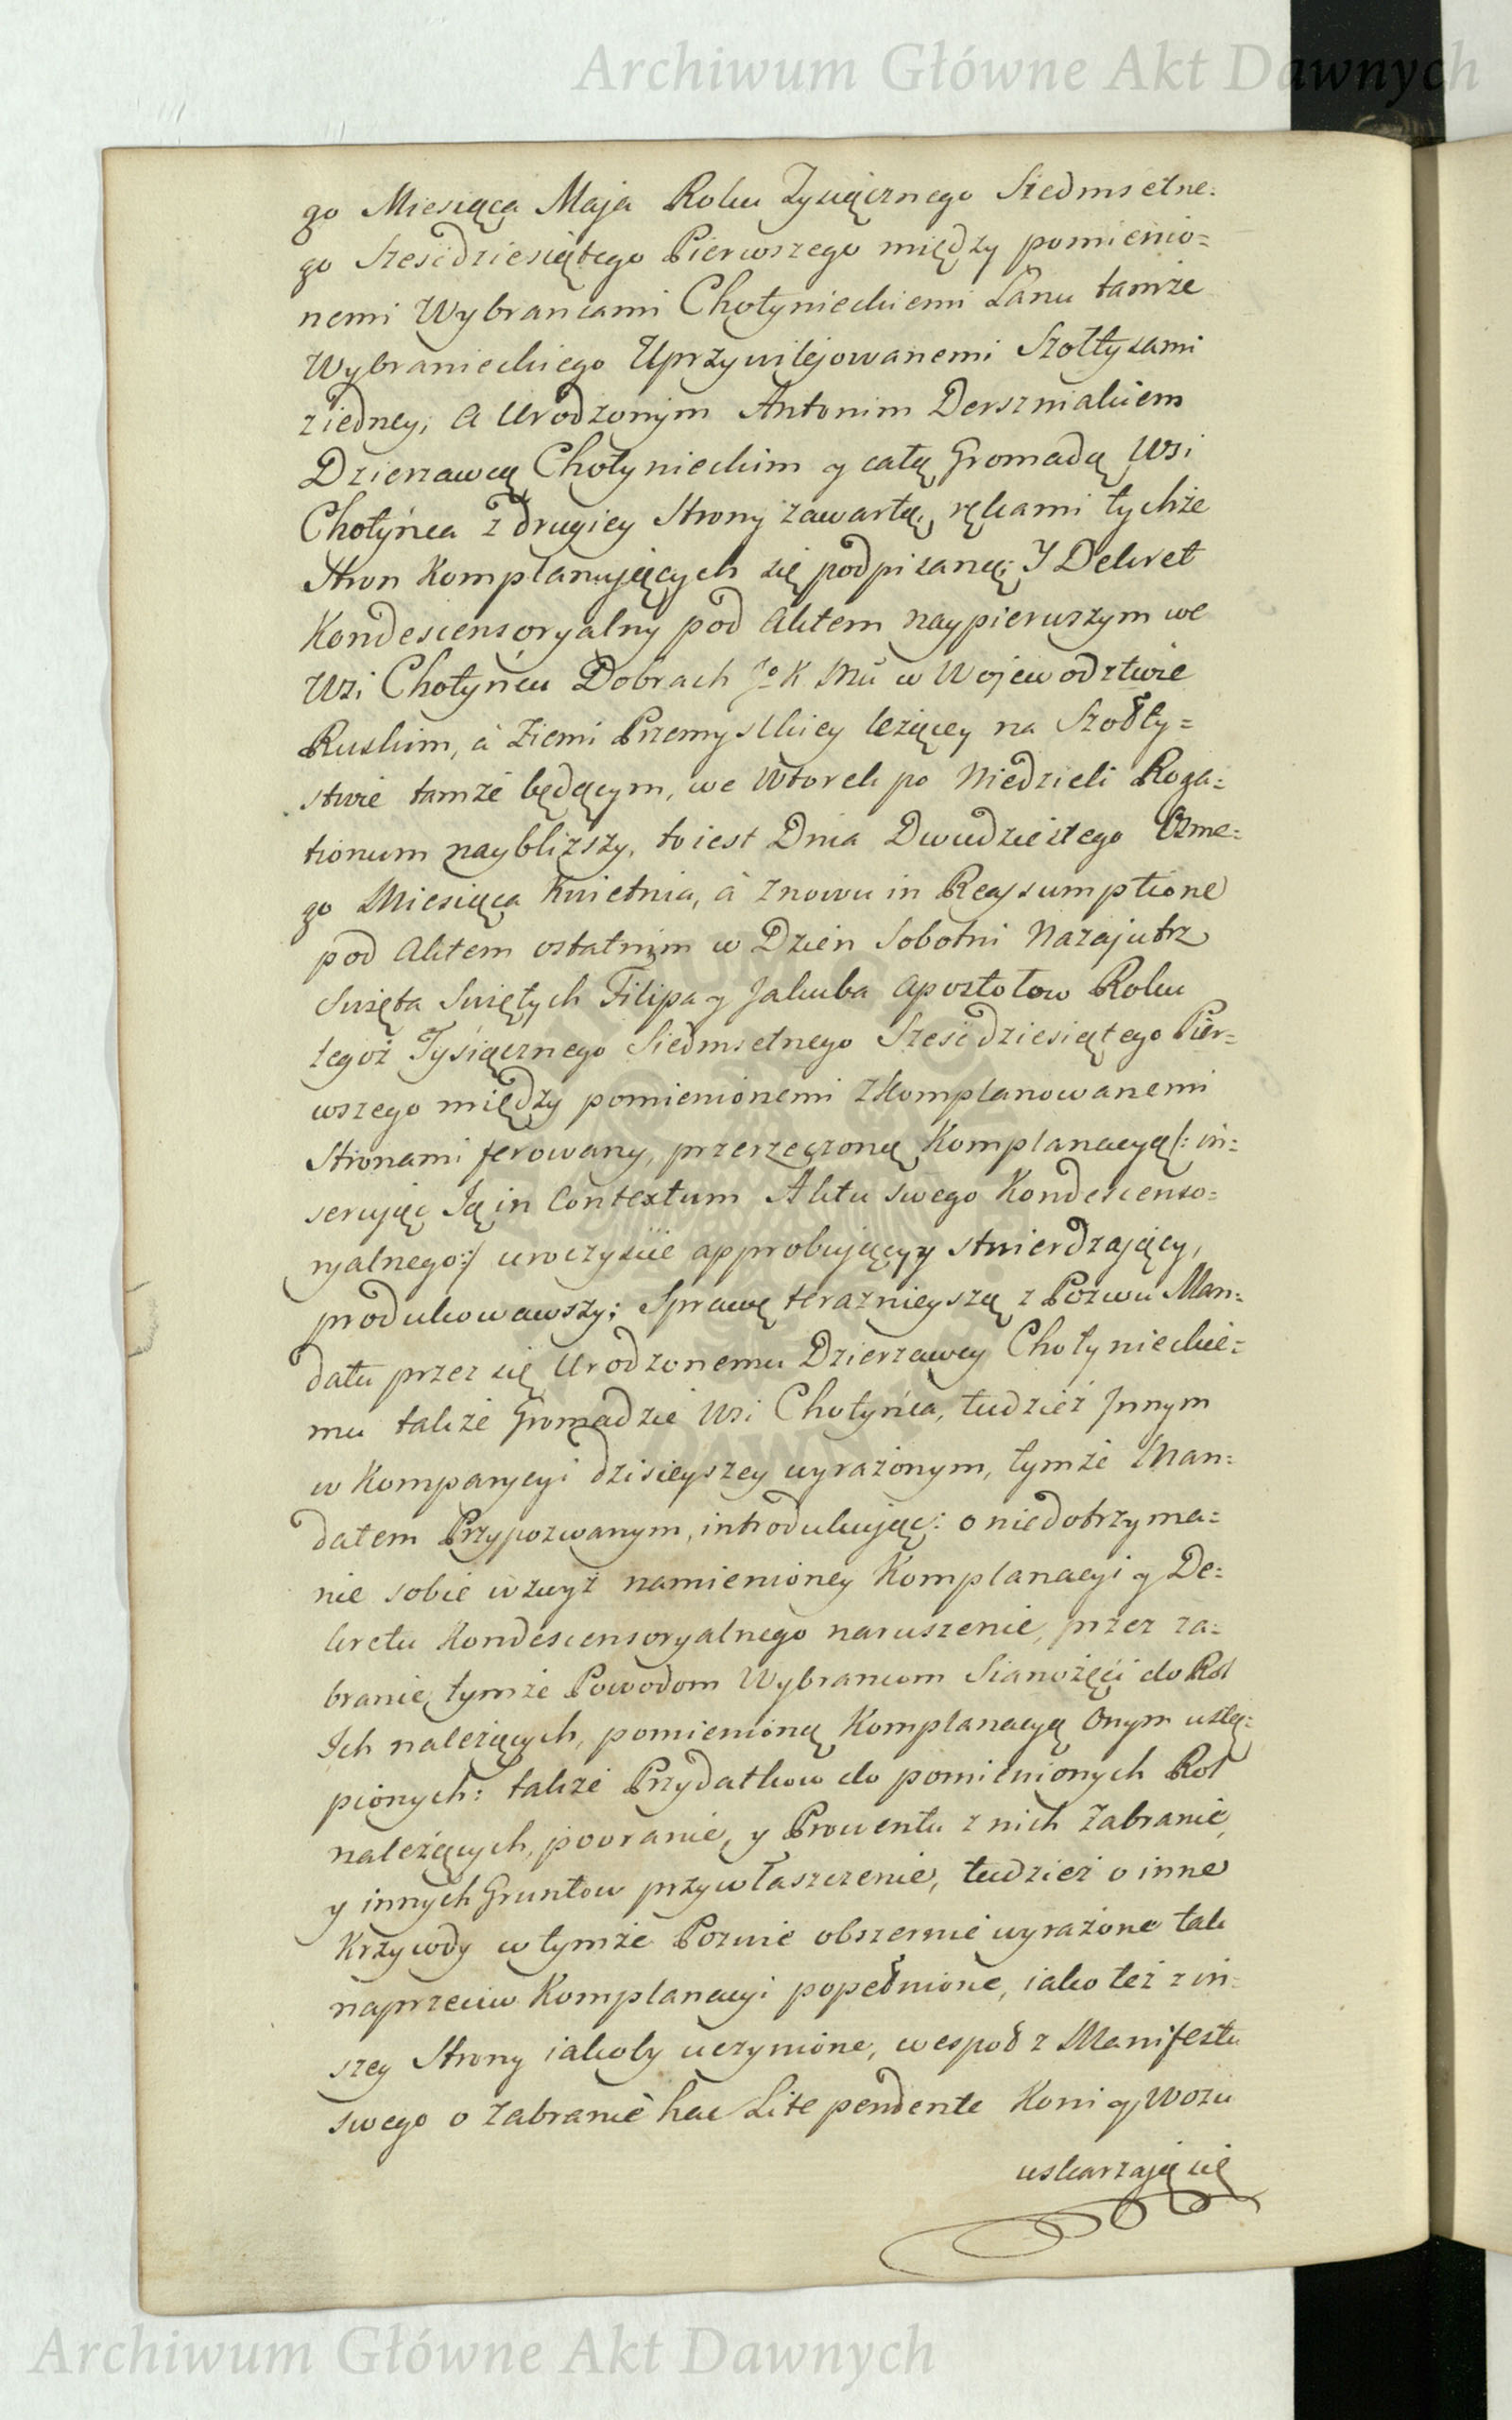 Archiwum Główne Akt Dawnych
go Miesiąca Maja Roku Tysiącznego Siedmsetne:
go Sześćdziesiątego Pierwszego między pomienio=
nemi Wybrańcami Chotynieckiemi Łanu tamże
Wybranieckiego Uprzywilejowanemi Szołtysami
z iedney; a Urodzonym Antonim Derszniakiem
Dzierzawcą Chotynieckim y całą Gromadą Wsi
Chotyńca z drugiey Strony zawartą, rękami tychże
Stron Komplanujących się podpisaną; Y Dekret
Kondescensoryalny pod Aktem naypierwszym we
Wsi Chotyńcu Dobrach Jo K Mci w Wojewodztwie
Ruskim, a Ziemi Przemyskiey leżącey na Szołty=
stwie tamże będącym, we Wtorek po Niedzieli Roga=
tionum naybliższy, to iest Dnia Dwudziestego Osme=
go Miesiąca Kwietnia, à znowu in Reassumptione
pod Aktem ostatnim w Dzień Sobotni Nazajutrz
Swięta Swiętych Filipa y Jakuba Apostołow Roku
tegoż Tysiącznego Siedmsetnego Sześćdziesiątego Pier=
wszego między pomienionemi Zkomplanowanemi
Stronami ferowany, przerzeczoną Komplanacyą /: in=
serując Ją in Contextum Aktu swego Kondescenso=
ryalnego :/ uroczyście approbujący y stwierdzający,
produkowawszy; Sprawę teraznieyszą z Pozwu Man=
datu przez się Urodzonemu Dzierzawcy Chotynieckie=
mu także Gromadzie Wsi Chotyńca, tudzież Innym
w Komparycyi dzisieyszey wyrażonym, tymże Man=
datem Przypozwanym, introdukując: o niedotrzyma=
nie sobie wzwyż namienioney Komplanacyi y De=
kretu Kondescensoryalnego naruszenie, przez za=
branie tymże Powodom Wybrancom Sianożęci do Rol
Ich należących, pomienioną Komplanacyą Onym ustą=
pionych: także Przydatkow do pomienionych Rol
należących, pooranie, y Prowentu z nich zabranie,
y innych Gruntow przywłaszczenie, tudzież o inne
Krzywdy w tymże Pozwie obszernie wyrażone tak
naprzeciw Komplanacyi popełnione, iako też z in=
szey Strony iakoby uczynione, wespoł z Manifestu
swego o zabranie hac Lite pendente Koni y Wozu
uskarzają się
Archiwum Główne Akt Dawnych